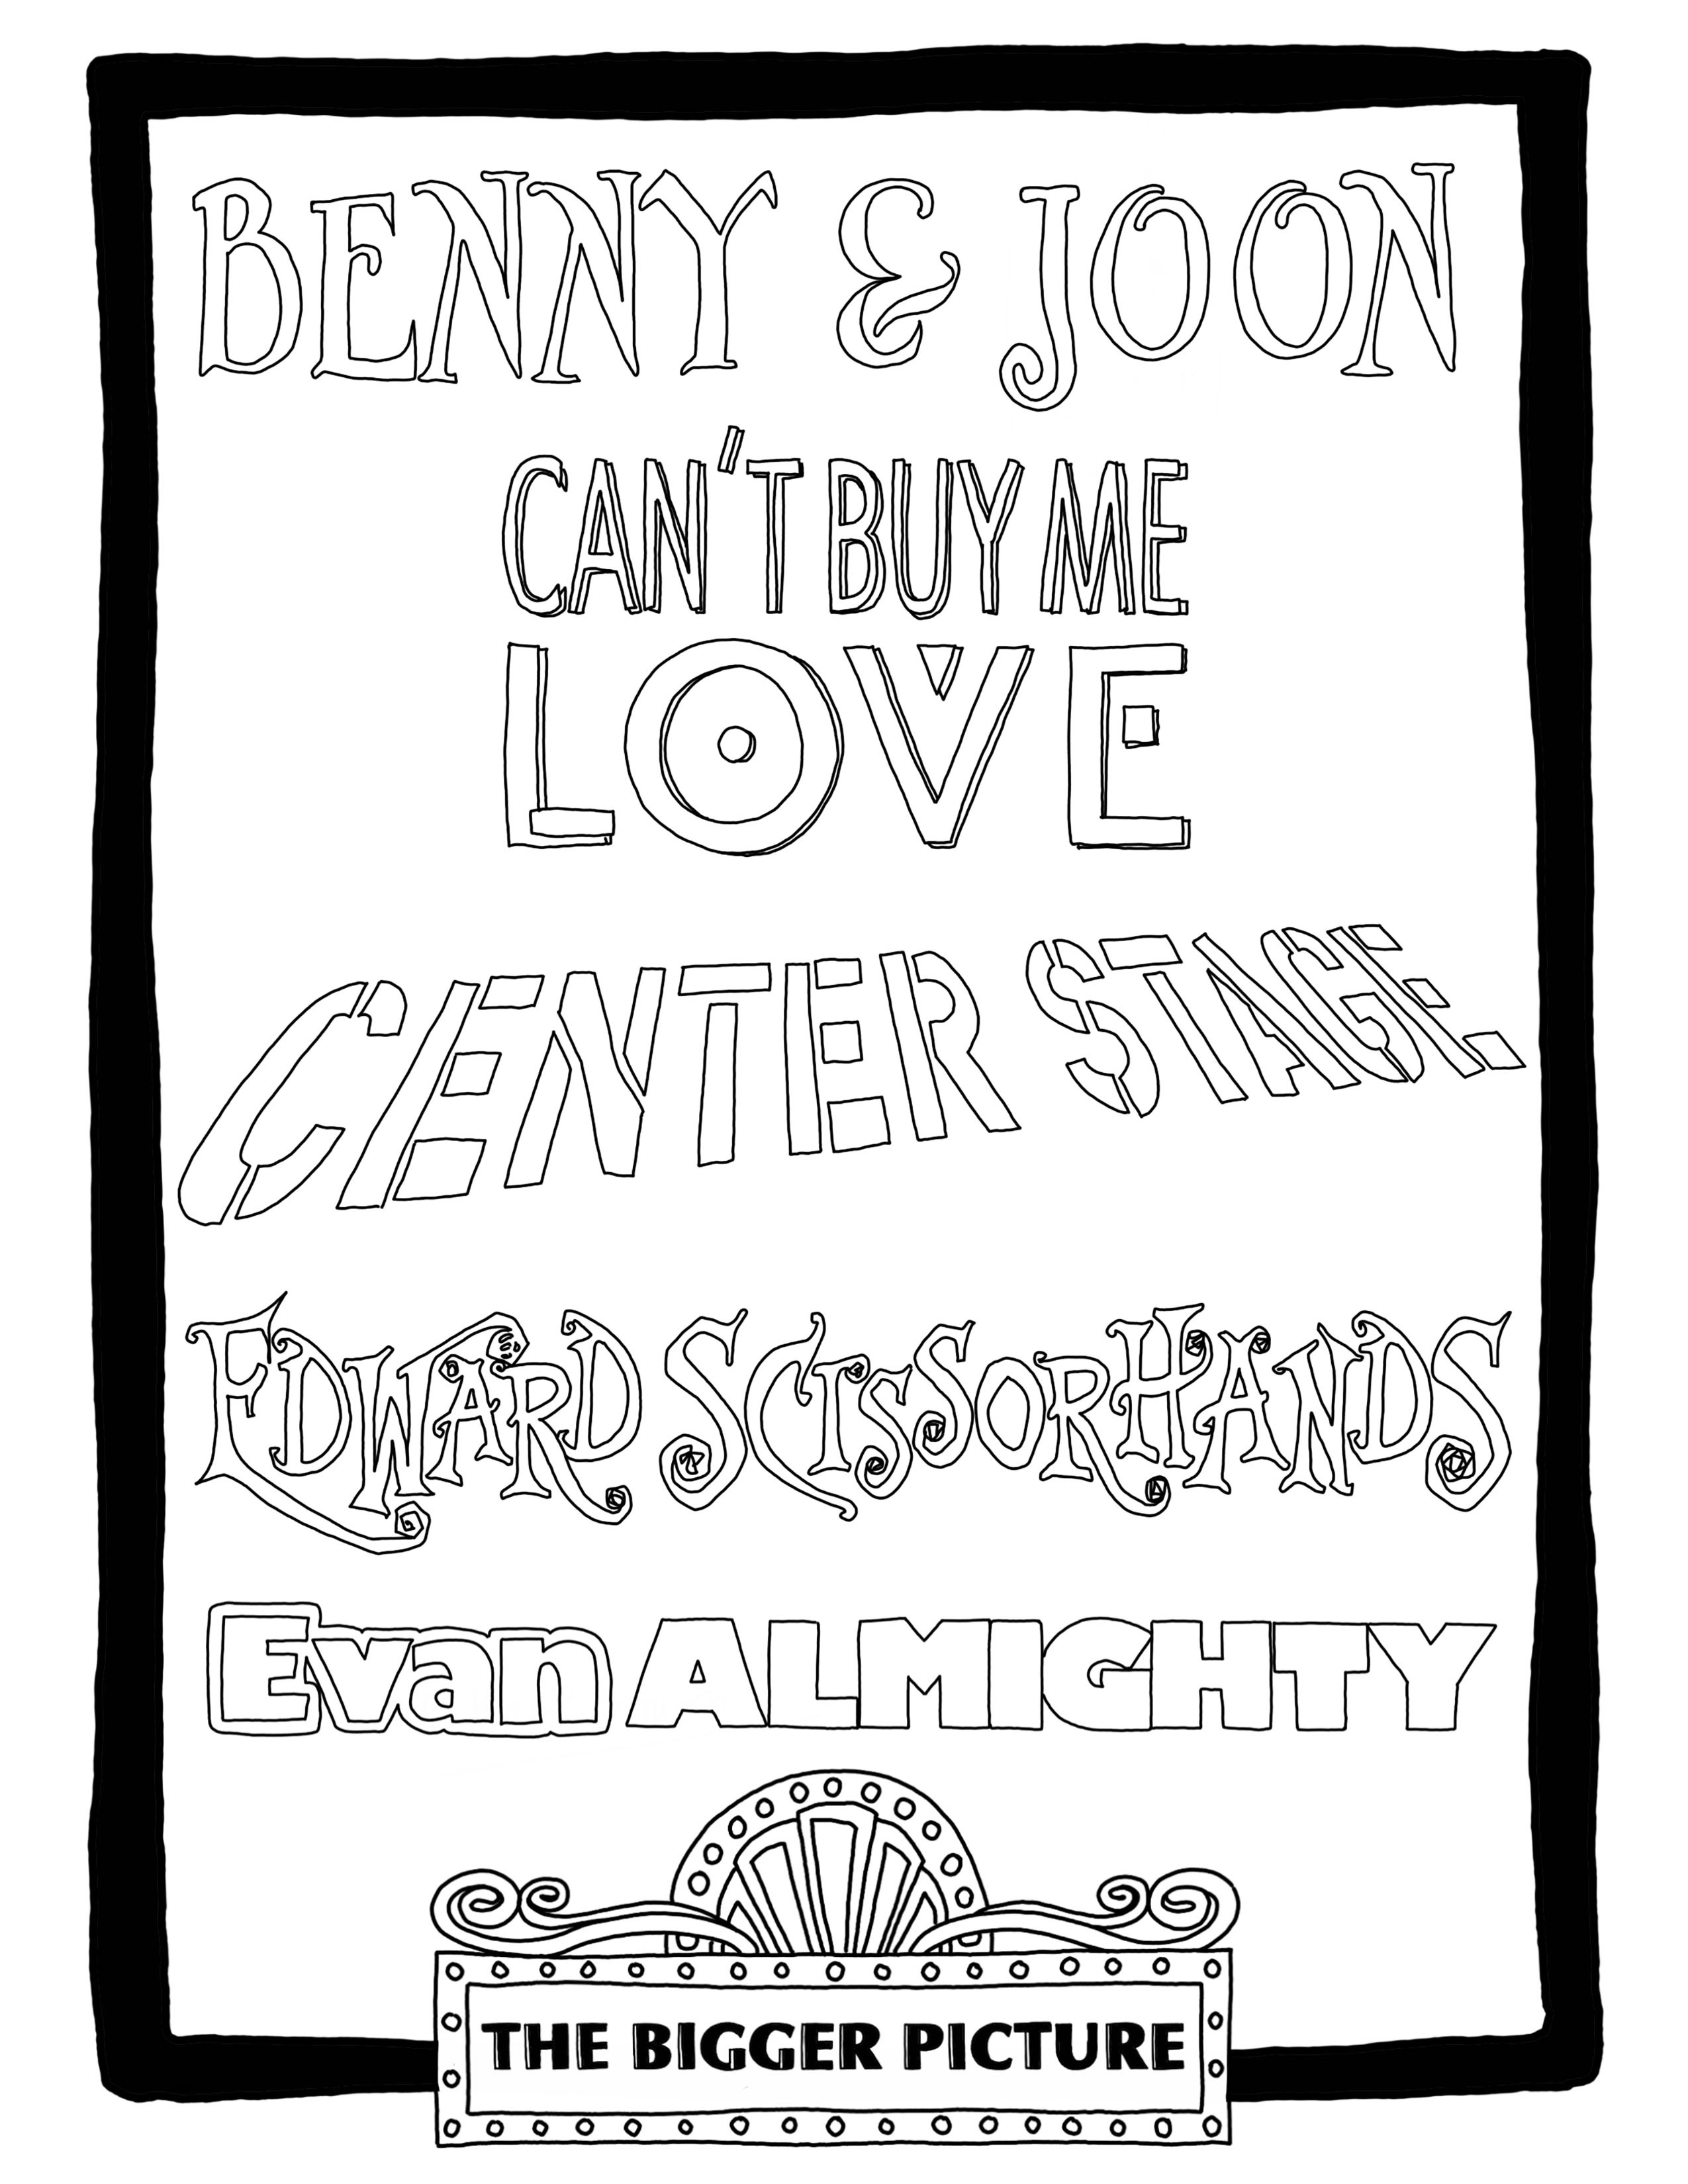 BENNY & JOON
CAN'T BUY ME
LOVE
CENTER STAGE
EDWARD SCISSORHANDS
Evan ALMIGHTY
THE BIGGER PICTURE